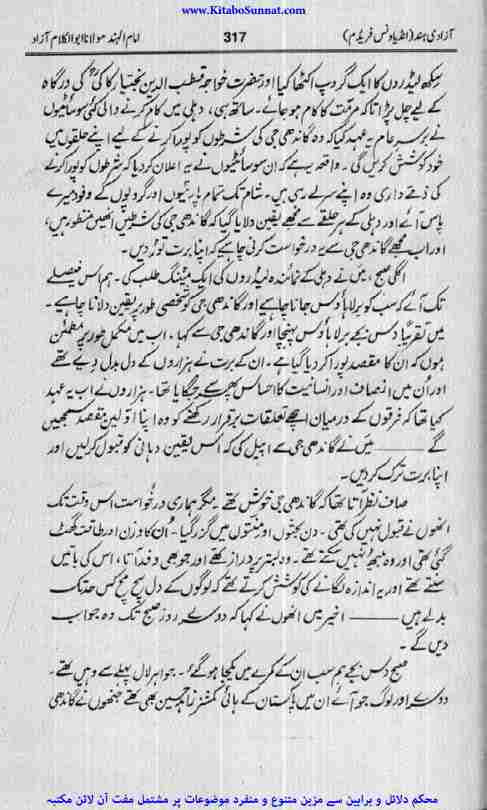 www.KitaboSunnat.com
آزادی ہند (انڈیا ونس فریڈم) 317 امام الہند مولانا ابوالکلام آزاد
سکھ لیڈروں کا ایک گروپ اکٹھا کیا اور حضرت خواجہ قطب الدین بختیار کاکیؒ کی درگاہ
کے لیے چل پڑا تاکہ مرمت کا کام ہو جائے۔ ساتھ ہی، دہلی میں کام کرنے والی کئی سوسائٹیوں
نے برسرِ عام یہ عہد کیا کہ وہ گاندھی جی کی شرطوں کو پورا کرنے کے لیے اپنے حلقوں میں
خود کوشش کریں گی۔ واقعہ یہ ہے کہ ان سوسائٹیوں نے یہ اعلان کر دیا کہ شرطوں کو پورا کرنے
کی ذمے داری وہ اپنے سر لے رہی ہیں۔ شام تک تمام پارٹیوں اور گروپوں کے وفود میرے
پاس آئے اور دہلی کے ہر حلقے سے مجھے یقین دلایا گیا کہ گاندھی جی کی شرطیں انھیں منظور ہیں،
اور اب مجھے گاندھی جی سے یہ درخواست کرنی چاہیے کہ اپنا برت توڑ دیں۔
اگلی صبح، میں نے دہلی کے نمائندہ لیڈروں کی ایک میٹنگ طلب کی۔ ہم اس فیصلے
تک آئے کہ سب کو برلا ہاؤس جانا چاہیے اور گاندھی جی کو شخصی طور پر یقین دلانا چاہیے۔
میں تقریباً دس بجے برلا ہاؤس پہنچا اور گاندھی جی سے کہا۔ اب میں مکمل طور پر مطمئن
ہوں کہ ان کا مقصد پورا کر دیا گیا ہے۔ ان کے برت نے ہزاروں کے دل بدل دیے تھے
اور ان میں انصاف اور انسانیت کا احساس پھر سے جگایا تھا۔ ہزاروں نے اب یہ عہد
کیا تھا کہ فرقوں کے درمیان اچھے تعلقات برقرار رکھنے کو وہ اپنا اولین مقصد سمجھیں
گے ——— میں نے گاندھی جی سے اپیل کی کہ اس یقین دہانی کو قبول کر لیں اور
اپنا برت ترک کر دیں۔
صاف نظر آتا تھا کہ گاندھی جی خوش تھے مگر ہماری درخواست اس وقت تک
انھوں نے قبول نہیں کی تھی۔ دن بحثوں اور منتوں میں گزر گیا۔ ان کا وزن اور طاقت گھٹ
گئی تھی اور وہ بیٹھ نہیں سکتے تھے۔ وہ بستر پر دراز تھے اور جو بھی وفد آتا، اس کی باتیں
سنتے تھے اور یہ اندازہ لگانے کی کوشش کرتے تھے کہ لوگوں کے دل سچ مچ کس حد تک
بدلے ہیں ——— اخیر میں انھوں نے کہا کہ دوسرے روز صبح تک وہ جواب
دیں گے۔
صبح دس بجے ہم سب ان کے کمرے میں یکجا ہو گئے۔ جواہر لال پہلے سے وہیں تھے۔
دوسرے اور لوگ جو آئے ان میں پاکستان کے ہائی کمشنر زاہد حسین بھی تھے جنھوں نے گاندھی
محکم دلائل و براہین سے مزین متنوع و منفرد موضوعات پر مشتمل مفت آن لائن مکتبہ